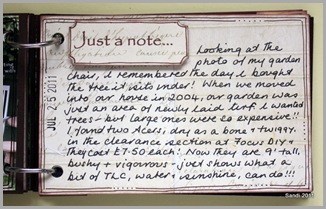 Just a note...
JUL 25 2011
Looking at the
photo of my garden
chair, I remembered the day I bought
the tree it sits under! When we moved
into our house in 2004, our garden was
just an area of newly laid turf. I wanted
trees - but large ones were so expensive!!
I found two Acers, dry as a bone & twiggy,
in the clearance section at Focus DIY &
they cost £7.50 each! Now they are 9' tall,
bushy & vigorous - just shows what a
bit of TLC, water & sunshine, can do!!!